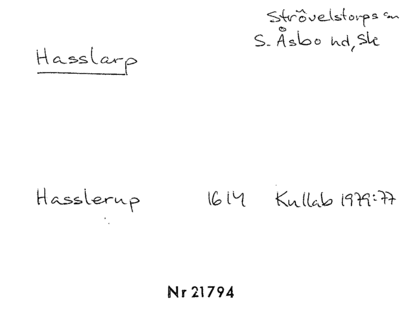 Strövelstorps sn
S. Åsbo hd, Sk
Hasslarp
Hasslerup 1614 Kullab 1979:77
Nr 21794